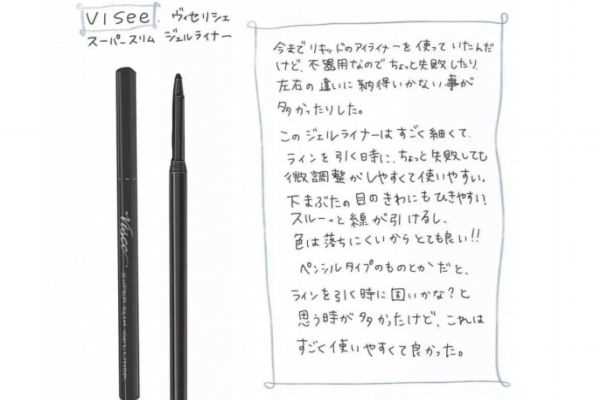 Visee ヴィセ リシェ
スーパースリム ジェルライナー
今までリキッドのアイライナーを使っていたんだ
けど、不器用なのでちょっと失敗したり、
左右の違いに納得いかない事が
多かったりした。
このジェルライナーはすごく細くて、
ラインを引く時に、ちょっと失敗しても
微調整がしやすくて使いやすい。
下まぶたの目のきわにもひきやすい
スルーっと線が引けるし、
色は落ちにくいからとても良い!!
ペンシルタイプのものとかだと、
ラインを引く時に固いかな?と
思う時が多かったけど、これは
すごく使いやすくて良かった。
Visee